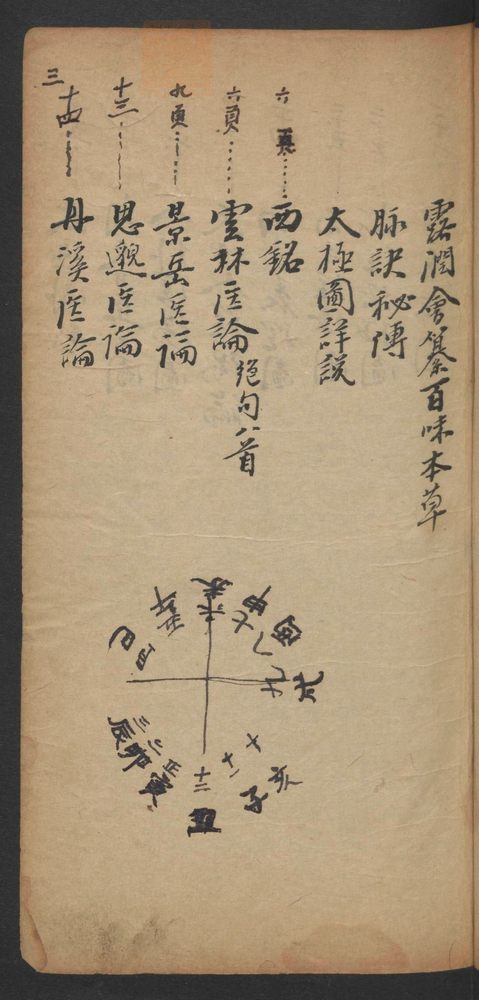 露潤會纂百味本草
脉訣秘傳
太極圖詳説
六頁 西銘
六頁 雲林医論 绝句八首
九頁 景岳医論
十三 思邈医論
三十四 丹溪医論
未 六
申 七
酉 八
戌 九
亥 十
子 十一
丑 十二
寅 正
卯 二
辰 三
巳 四
午 五